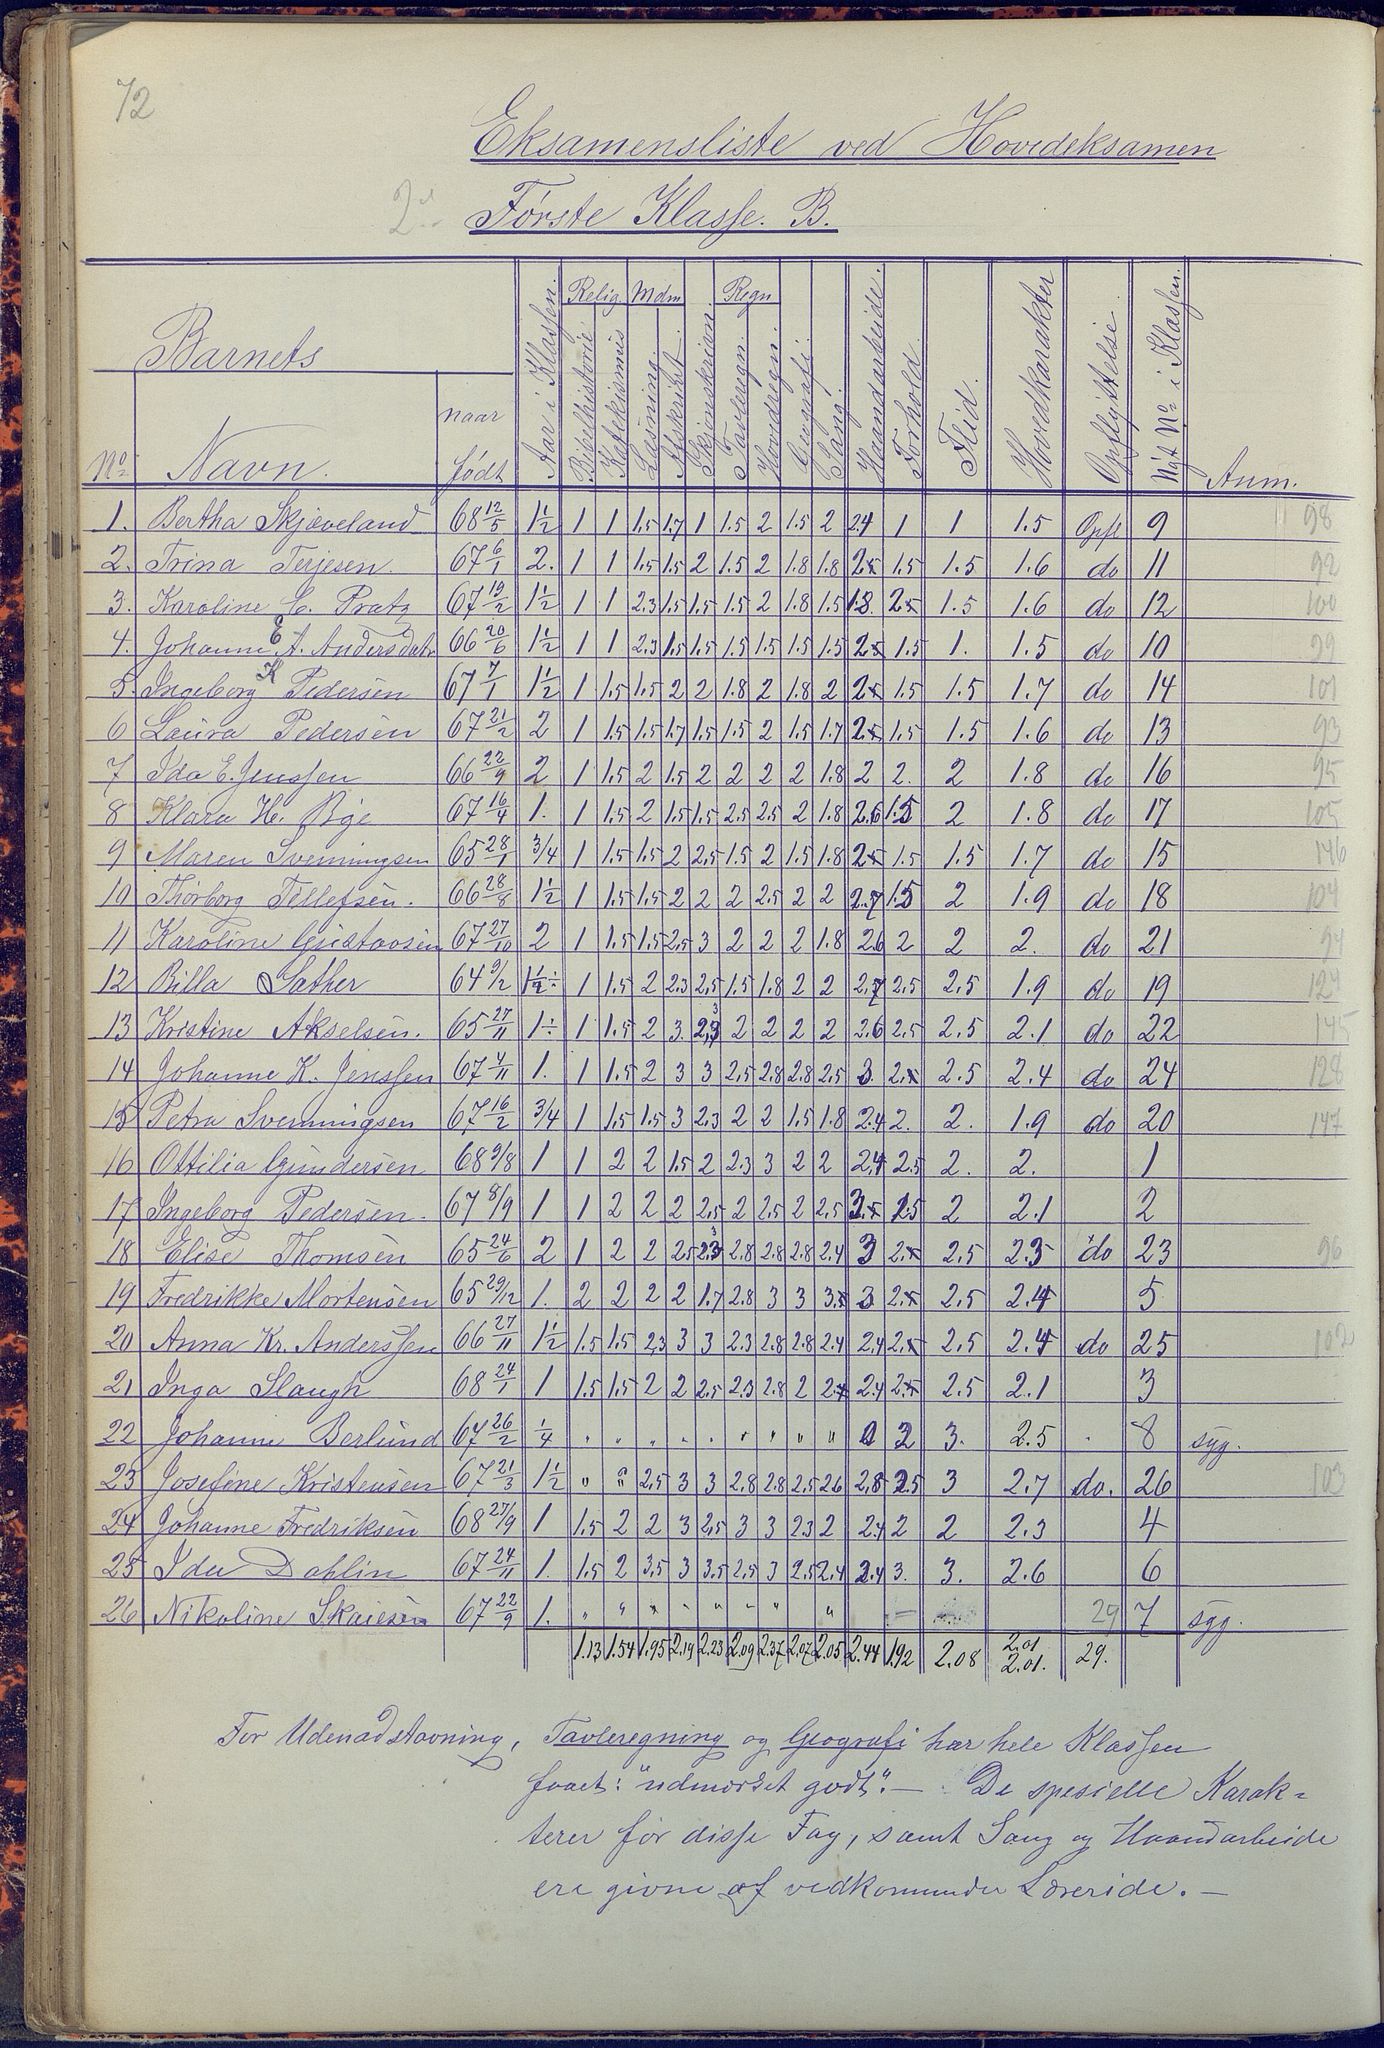 72
Eksamensliste ved Hovedeksamen
2den Første Klasse. B.
Barnets
No. Navn. naar født Aar i Klassen. Relig. Bibelhistorie Katekismus Mdm. Læsning. Afskrivt. Skjønskrivn. Regn. Tavleregn. Hovedregn. Geografi. Sang. Haandarbeide. Forhold. Flid. Hovedkarakter Opflyttelse. Nyt No. i Klassen. Anm.
1. Bertha Skjæveland 68 12/5 1 1/2 1 1 1.5 1.7 1 1.5 2 1.5 2 2.4 1 1 1.5 Opfl 9 98
2. Trina Terjesen. 67 6/1 2. 1 1 1.5 1.5 2 1.5 2 1.8 1.8 2.5 1.5 1.5 1.6 do 11 92
3. Karoline C. Pratz 67 19/2 1 1/2 1 1 2.3 1.5 1.5 1.5 2 1.8 1.5 1.8. 2.5 1.5 1.6 do 12 100
4. Johanne E A. Andersdatr 66 20/6 1 1/2 1 1 2.3 1.5 1.5 1.5 1.5 1.5 1.5 2.5 1.5 1. 1.5 do 10 99
5. Ingeborg K Pedersen 67 7/1 1 1/2 1 1.5 1.5 2 2 1.8 2 1.8 2 2.5 1.5 1.5 1.7 do 14 101
6 Laura Pedersen 67 21/2 2 1 1.5 1.5 1.7 1.5 1.5 2 1.5 1.7 2.5 1.5 1.5 1.6 do 13 93
7 Ida E. Jenssen 66 22/9 2 1 1.5 2 1.5 2 2 2 2 1.8 2 2. 2 1.8 do 16 95
8 Klara H. Bge 67 16/4 1. 1 1.5 2 1.5 1.5 2.5 2.5 2 1.8 2.6 1.5 2 1.8 do 17 105
9 Maren Svenningsen 65 28/1 3/4 1 1.5 1.5 2 2.5 1.5 2 1.5 1.8 2.5 1.5 1.5 1.7 do 15 146
10 Thorborg Tellefsen. 66 28/8 1 1/2 1 1.5 1.5 2 2 2 2.5 2 2 2.7 1.5 2 1.9 do 18 104
11 Karoline Gustavsen 67 27/10 2 1 1.5 1.5 2.5 3 2 2 2 1.8 2.6 2 2 2. do 21 94
12 Billa Sather 64 9/2 1 1/2 ÷ 1 1.5 2 2.3 2.5 1.5 1.8 2 2 2.7 2.5 2.5 1.9 do 19 127
13 Kristine Akselsen. 65 27/11 1 ÷ 1 1.5 2 3. 2.3 2 2 2 2 2.6 2.5 2.5 2.1 do 22 145
14 Johanne K. Jenssen 67 4/11 1. 1 1.5 2 3 3 2.5 2.8 2.8 2.5 3. 2.5 2.5 2.4 do 24 128
15 Petra Svenningsen 67 16/2 3/4 1 1.5 1.5 3 2.3 2 2 1.5 1.8 2.4 2. 2. 1.9 do 20 147
16 Ottilia Gundersen 68 9/8 1 1 2 2 1.5 2 2.3 3 2 2 2.4 2.5 2. 2. 1
17 Ingeborg Pedersen. 67 8/9 1 1 2 2 2 2.5 2 2.5 2 2.5 3.5 2.5 2 2.1 2
18 Elise Thomsen 65 24/6 2 1 2 2 2.5 2.3 2.8 2.8 2.8 2.4 3 2.5 2.5 2.3 do 23 96
19 Fredrikke Mortensen 65 29/12 1. 2 2 2 2 1.7 2.8 3 3 3.5 3 2.5 2.5 2.4 5
20 Anna Kr. Anderssen 66 27/11 1 1/2 1.5 1.5 2.3 3 3 2.3 2.8 2.8 2.4 2.4 2.5 2.5 2.4 do 25 102
21 Inga Slaugh 68 24/1 1 1.5 1.5 2 2 2.5 2.3 2.8 2 2.4 2.4 2.5 2.5 2.1 3
22 Johanne Berlund 67 26/2 1/4 " " " " " " " " " 2 3. 2.5 8 syg.
23 Josefine Kristensen 67 21/3 1 1/2 " " 2.5 3 3 2.8 2.8 2.5 2.6 2.8 2.5 3 2.7 do. 26 103
24 Johanne Fredriksen 68 27/9 1 1.5 2 2 3 2.5 3 3 2.3 2 2.4 2 2 2.3 4
25 Ida Dahlin 67 24/11 1. 1.5 2 3.5 3 3.5 2.5 3 2.5 2.4 2.4 3. 3. 2.6 6
26 Nikoline Skaiesen 67 22/9 1. " " " " " " " " 29 7 syg.
1.13 1.54 1.95 2.19 2.23 2.09 2.37 2.07 2.05 2.44 1.92 2.08 2.01 2.01. 29.
For Udenadstavning, Tavleregning og Geografi har hele Klassen
faaet: "udmærket godt". — De spesielle Karak=
terer for disse Fag, samt Sang og Haandarbeide
ere givne af vedkommende Læreride. —